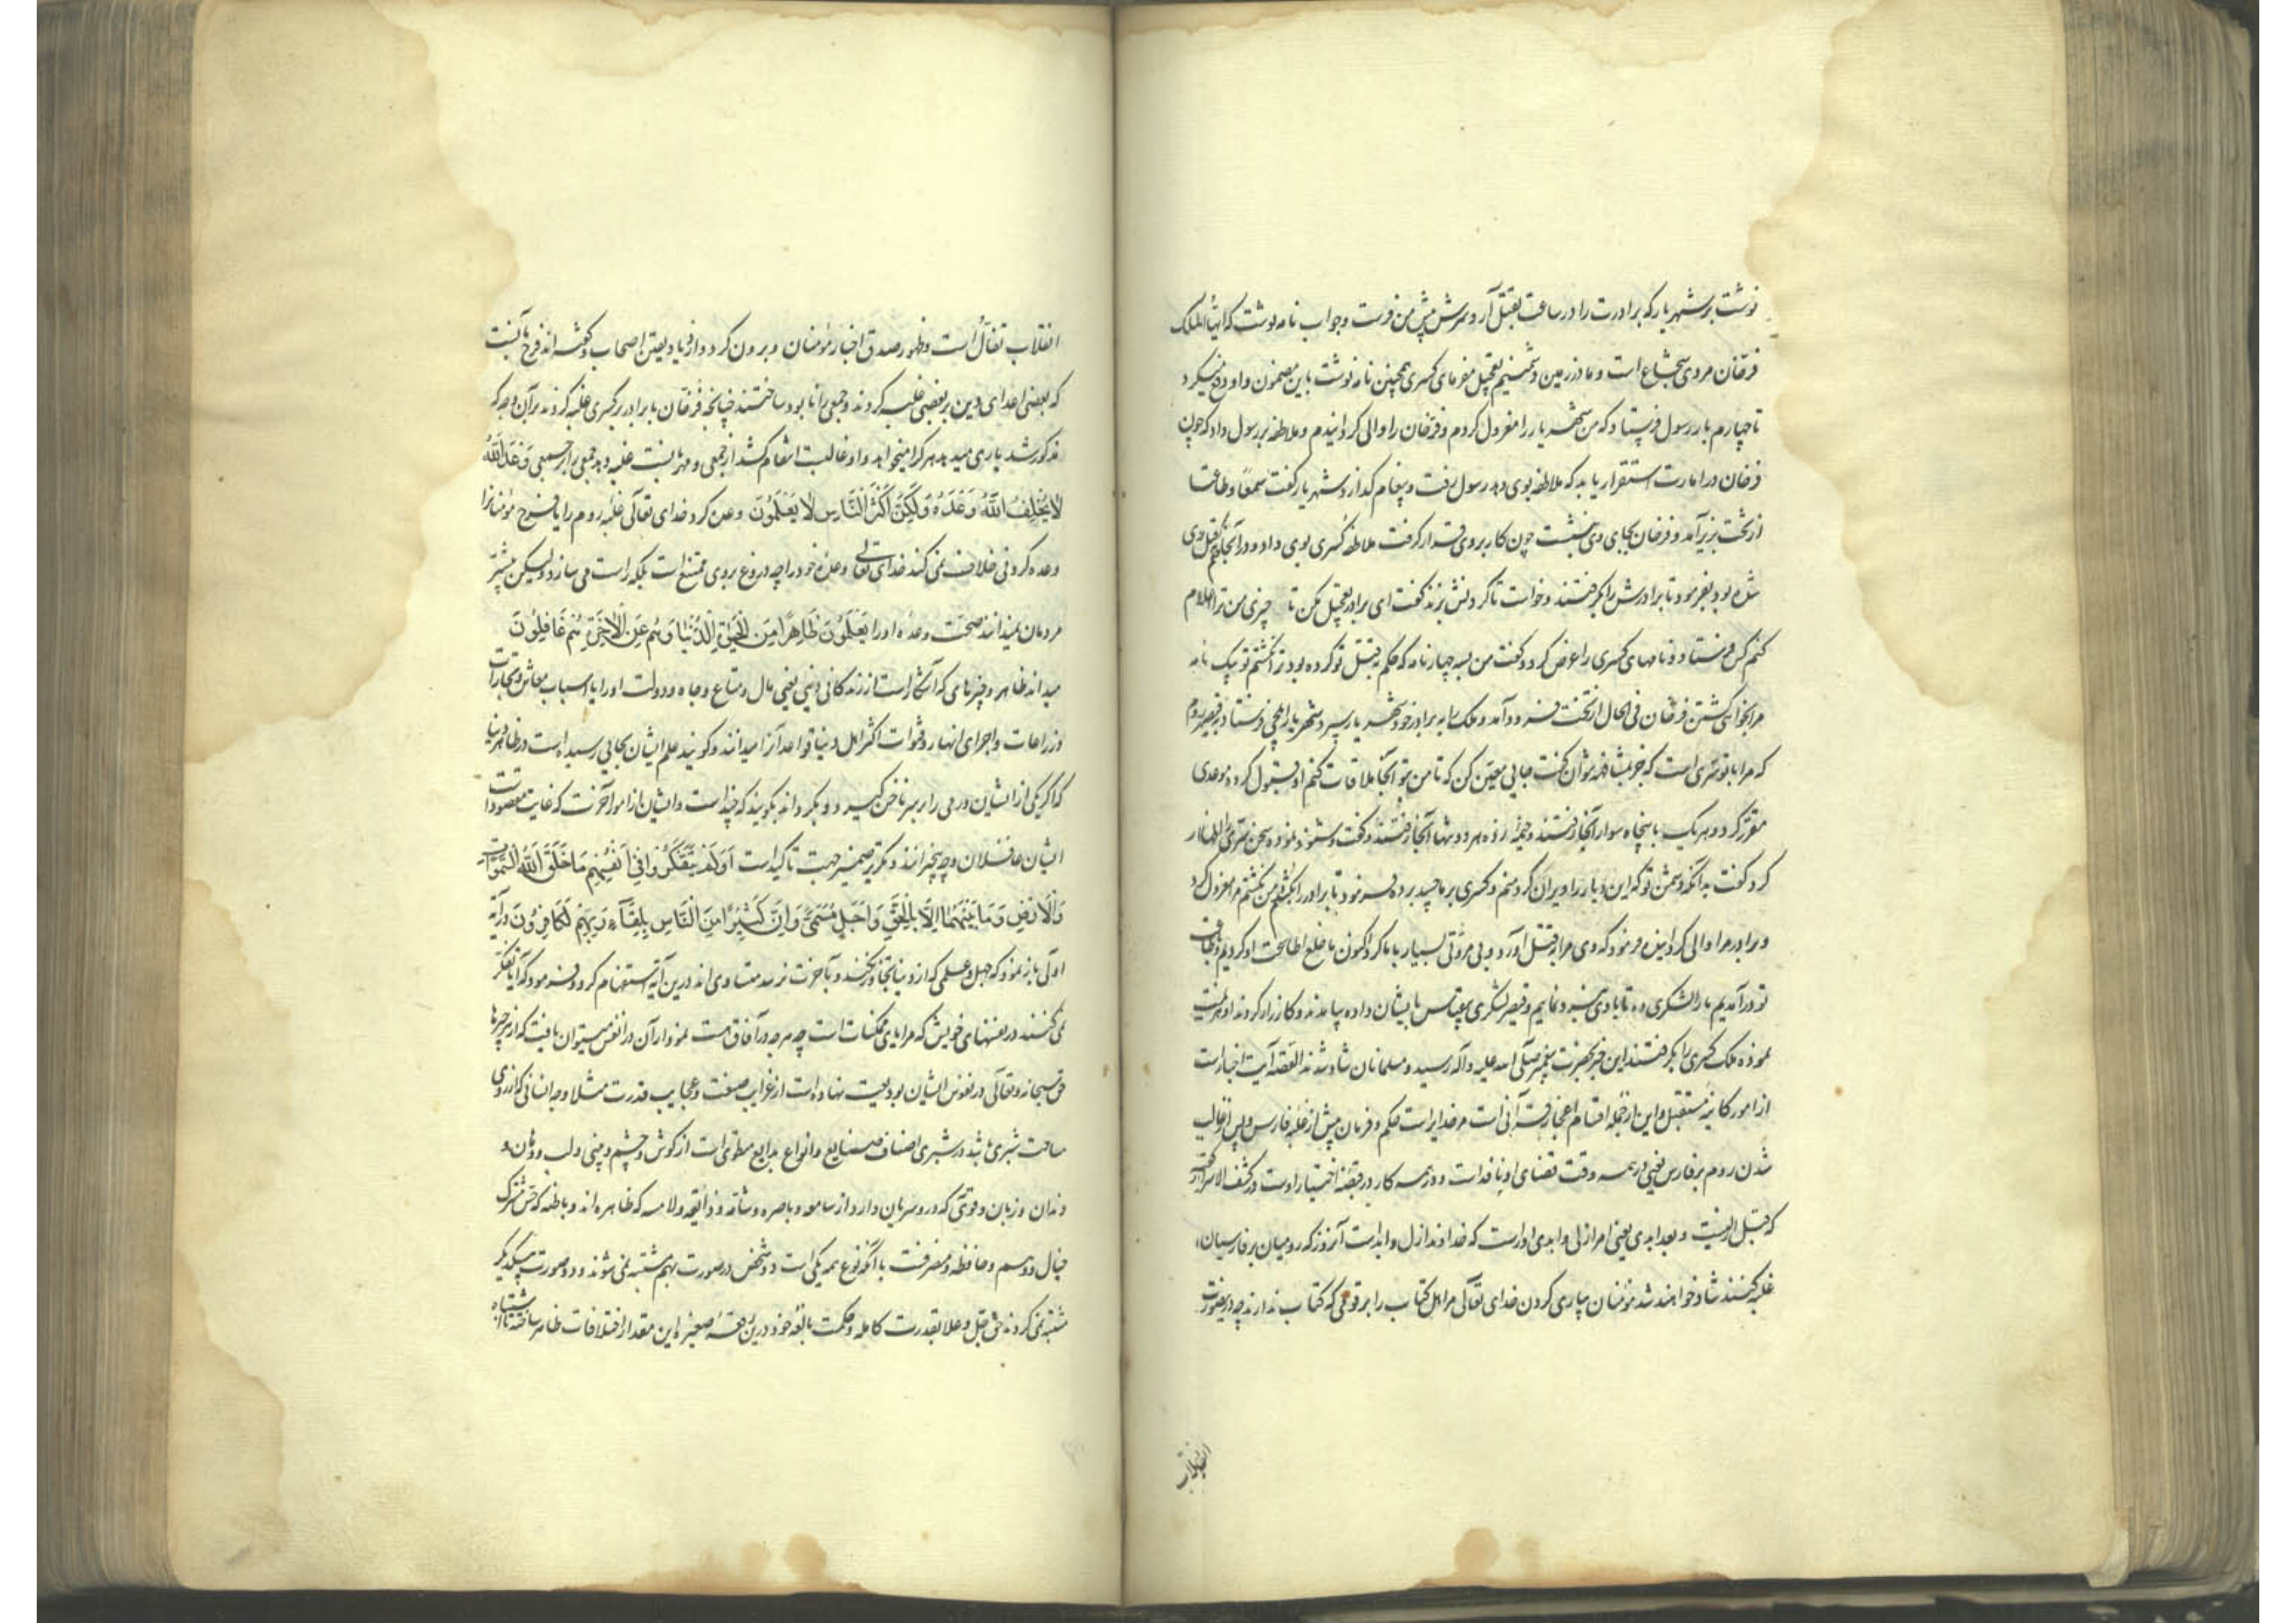 نوشت بر شهریار که برادرت را در ساعت بقتل آر و سرش پیش من فرست وجواب نامه نوشت که ایها الملک
فرخان مردی شجاع است و مادر زمین دشمنیم تعجیل مفرمای کسری همچنین نامه نوشت باین مضمون و او دفع میکرد
تا چهارم بار رسول فرستاد که من شهریار را معزول کردم و فرخان را والی کردانیدم و ملاطفه بر رسول داد که چون
فرخان در امارت استقرار یابد که ملاطفه بوی دهد رسول برفت و پیغام کذارد شهریار کفت سمعا وطاعة
از تخت بزیر آمد و فرخان بجای وی بنشست چون کار بروی قرار کرفت ملاطفه کسری بوی داد و در آنجا حکم قتل وی
شده بود بفرمود تا برادرش را بکرفتند و خواست تا کردنش بزند کفت ای برادر تعجیل مکن تا چیزی من ترا اعلام
کنم کس فرستاد و نامهای کسری را عرض کرد و کفت من بسه چهار نامه که حکم بقتل تو کرده بود ترا نکشتم تو بیک نامه
مرا بخواهی کشتن فرخان فی الحال از تخت فرود آمد و ملک را به برادر خود شهریار سپرد شهریار ایلچی فرستاد بر قیصر روم
که مرا با تو سری است که جز بمشافهه نتوان کفت جایی معین کن که تا من بتو آنجا ملاقات کنم او قبول کرد و موعدی
مقرر کرد و هر یک با پنجاه سوار آنجا رفتند و خیمه زده هر دو تنها آنجا رفتند و کفت و شنود نموده سخن سری اظهار
کرد کفت بدانکه دشمن تو که این دیار را ویران کرد منم و کسری بر ما حسد برده فرمود تا برادر را بکشم من نکشتم مرا معزول کرد
و برادر مرا والی کردانیده فرمود که وی مرا بقتل آورد و بی مروتی بسیار با ما کرد اکنون ما خلع اطاعت او کردیم و بطاعت
تو در آمدیم ما را لشکری ده تا با وی نبرد نمائیم و قیصر لشکری بی قیاس بایشان داده بیامدند و کارزار کردند او هزیمت
نموده ملک کسری را بکرفتند این خبر بحضرت پیغمبر صلی الله علیه وآله رسید و مسلمانان شاد شدند القصه آیت اخبار است
از امور کائنه مستقبل و این از جمله اقسام اعجاز قرآنی است مر خدایراست حکم و فرمان پیش از غلبه فارس و پس از غالب
شدن روم بر فارس یعنی در همه وقت قضای او نافذ است و همه کار در قبضه اختیار اوست در کشف الاسرار
که قبل ازلیست و بعد ابدی یعنی امر ازلی و ابدی اوراست که خداوند ازل و ابداست آنروز که رومیان بر فارسیان
غلبه کنند شاد خواهند شد مؤمنان بیاری کردن خدای تعالی مر اهل کتاب را بر قومی که کتاب ندارند چه درین صورت
انقلاب
انقلاب تفأل است و ظهور صدق اخبار مؤمنان و بیرون کرد و ازدیاد یقین اصحاب و کفته اند فرح آنست
که بعضی اعدای دین بر بعضی غلبه کردند و جمعی را نابود ساختند چنانچه فرخان با برادر بر کسری غلبه کردند بر آن وجه که
مذکور شد یاری میدهد هر کرا میخواهد و او غالبست انتقام کشد از جمعی و مهربانست غلبه دهد جمعی را بر جمعی وَعْدَ اللَّهِ
لَا يُخْلِفُ اللَّهُ وَعْدَهُ وَلَكِنَّ أَكْثَرَ النَّاسِ لَا يَعْلَمُونَ وعده کرد خدای تعالی غلبه روم را یا فرح مؤمنانرا
وعده کردنی خلاف نمی کند خدای تعالی وعده خود را چه دروغ بر وی ممتنع است بلکه راست می سازد ولیکن بیشتر
مردمان نمیدانند صحت وعده او را يَعْلَمُونَ ظَاهِرًا مِنَ الْحَيٰوةِ الدُّنْيَا وَهُمْ عَنِ الْآخِرَةِ هُمْ غَافِلُونَ
میدانند ظاهر و چیزهایی که آشکار است از زندکانی دنیی یعنی مال و متاع و جاه و دولت او را یا اسباب معاش و تجارات
و زراعات و اجرای انهار و قنوات اکثر اهل دنیا قواعد آنرا میدانند و کویند علم ایشان بجایی رسیده است در ظاهر دنیا
که اکر یکی از ایشان درمی را بر سر ناخن کیرد و بکرداند بکویند که چند است و ایشان از امور آخرت که غایت مقصود است
ایشان غافلان و بیخبرانند و تکریر ضمیر جهت تاکید است أَوَلَمْ يَتَفَكَّرُوا فِي أَنْفُسِهِمْ مَا خَلَقَ اللَّهُ السَّمٰوَاتِ
وَالْأَرْضَ وَمَا بَيْنَهُمَا إِلَّا بِالْحَقِّ وَأَجَلٍ مُسَمًّى وَإِنَّ كَثِيرًا مِنَ النَّاسِ بِلِقَاءِ رَبِّهِمْ لَكَافِرُونَ در آیه
اولی باز نمود که جهل و علمی که از دنیا تجاوز نکند و بآخرت نرسد متساوی اند درین آیه استفهام کرد و فرمود که آیا تفکر
نمی کنند در نفسهای خویش که مرایای ممکنات است چه هر چه در آفاق هست نمودار آن در انفس میتوان یافت که از هر چیزها
حق سبحانه و تعالی در نفوس ایشان بودیعت نهاده است از غرایب صنعت و عجایب قدرت مثلا وجه انسانی که از روی
مساحت شبری باشد در شبری اصناف صنایع و انواع بدایع مطوی است از کوش و چشم و بینی و لب و دهان و
دندان و زبان و قوتی که در و سریان دارد از سامعه و باصره و شامه و ذایقه و لامسه که ظاهره اند و باطنه که حس مشترک
خیال و وهم و حافظه و متصرفه است با آنکه نوع همه یکی است دو شخص در صورت بهم مشتبه نمی شوند و دو صورت بیکدیکر
مشتبه نمی کردند حق جل و علا بقدرت کامله و حکمت بالغه خود درین رقعه صغیره این مقدار اختلافات ظاهر ساخته تا اشتباه